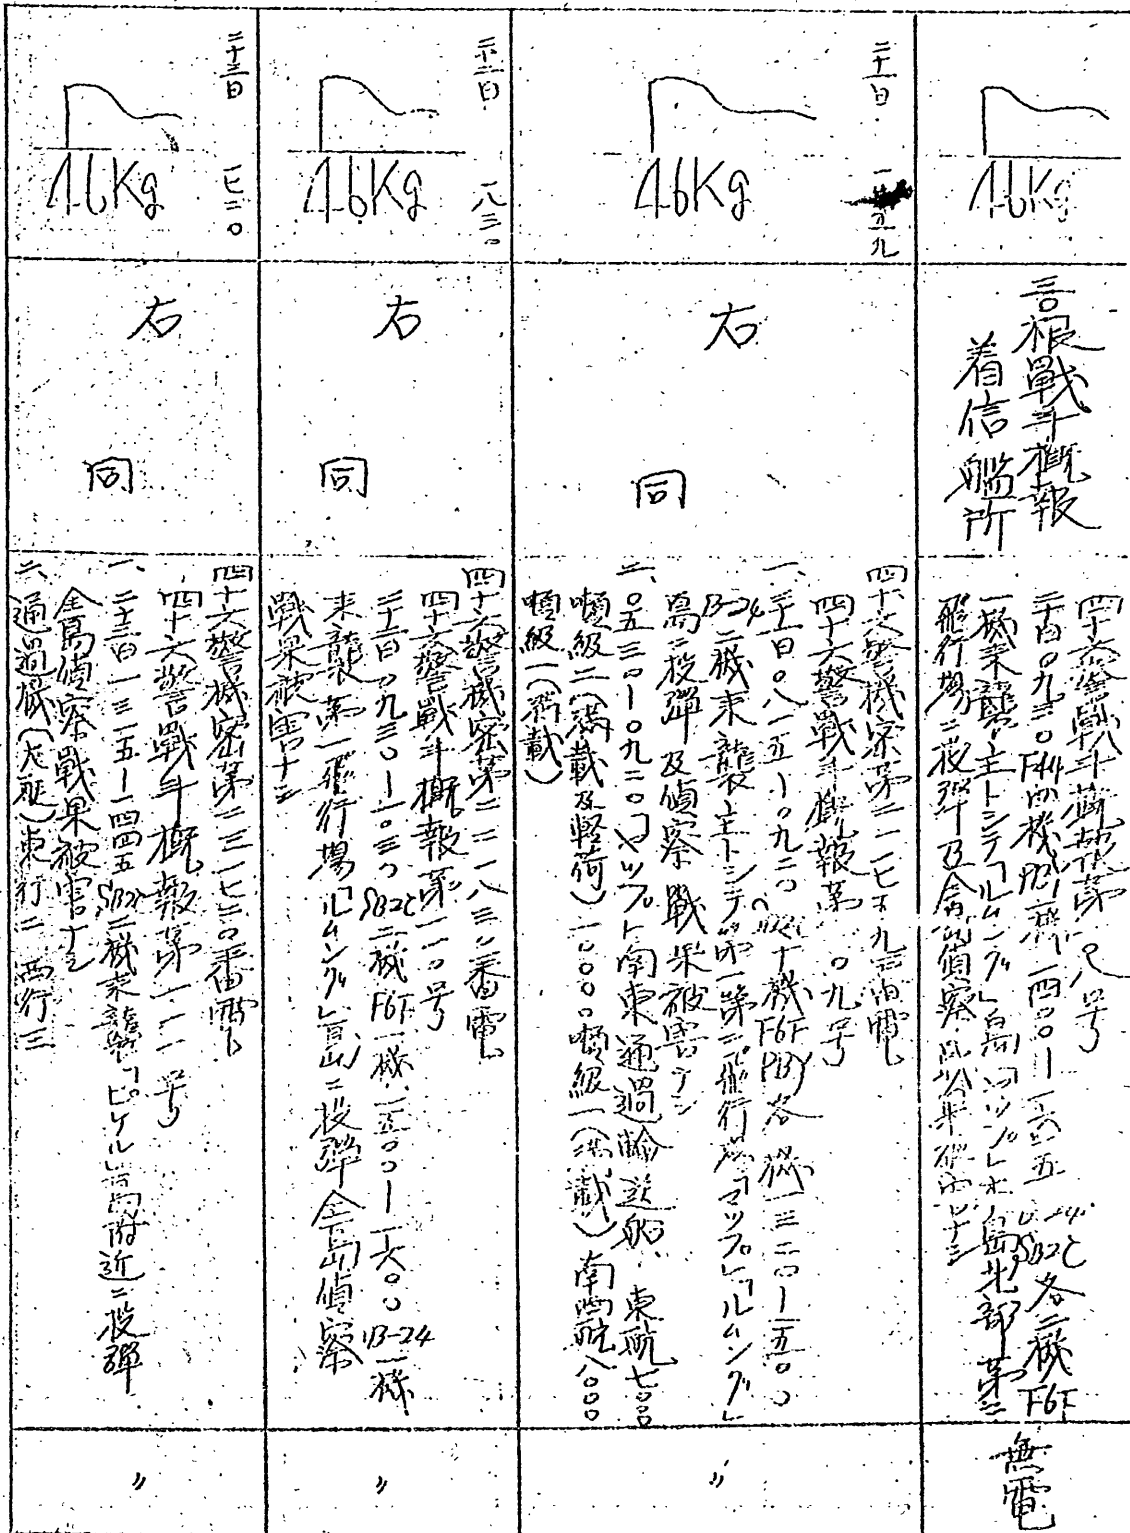 46Kg
三根戰斗概報
着信艦所
四十六警戰斗概報第一〇八号
二十日〇九三〇F4U四機PBY一機一四〇〇ー一六一五B-24 SB2C各二機F6F
一機来襲主トシテ「ルムング」島「マップ」本島北部第二
飛行場ニ投弾及全島偵察戰果被害ナシ
無電
二十一日
46Kg
右
同
四十六警機密第二一一七五九番電
四十六警戰斗概報第一〇九号
一、二十一日〇八一五ー〇九二〇SB2C十機F6F PBY各一機一三二〇ー一五〇〇
B-24二機来襲主トシテ第一第二飛行場「マップ」「ルムング」
島ニ投弾及偵察戰果被害ナシ
二、〇五三〇ー〇九二〇「マップ」南東通過輸送船、東航七〇〇〇
噸級二(満載及軽荷)一〇〇〇〇噸級一(満載)南西航八〇〇〇
噸級一(満載)
〃
二十二日
一八三〇
46Kg
右
同
四十六警機密第二二一八三〇番電
四十六警戰斗概報第一一〇号
二十二日〇九三〇ー一〇三〇SB2C二機F6F一機、一五〇〇ー一六〇〇B-24一機
来襲第一飛行場「ルムング」島ニ投弾全島偵察
戰果被害ナシ
〃
二十三日
一七二〇
46Kg
右
同
四十六警機密第二三一七二〇番電
四十六警戰斗概報第一一一号
一、二十三日一三一五ー一四四五SB2C二機来襲「ピケル」島附近ニ投弾
全島偵察戰果被害ナシ
二、通過機(大艇)東行二 西行三
〃